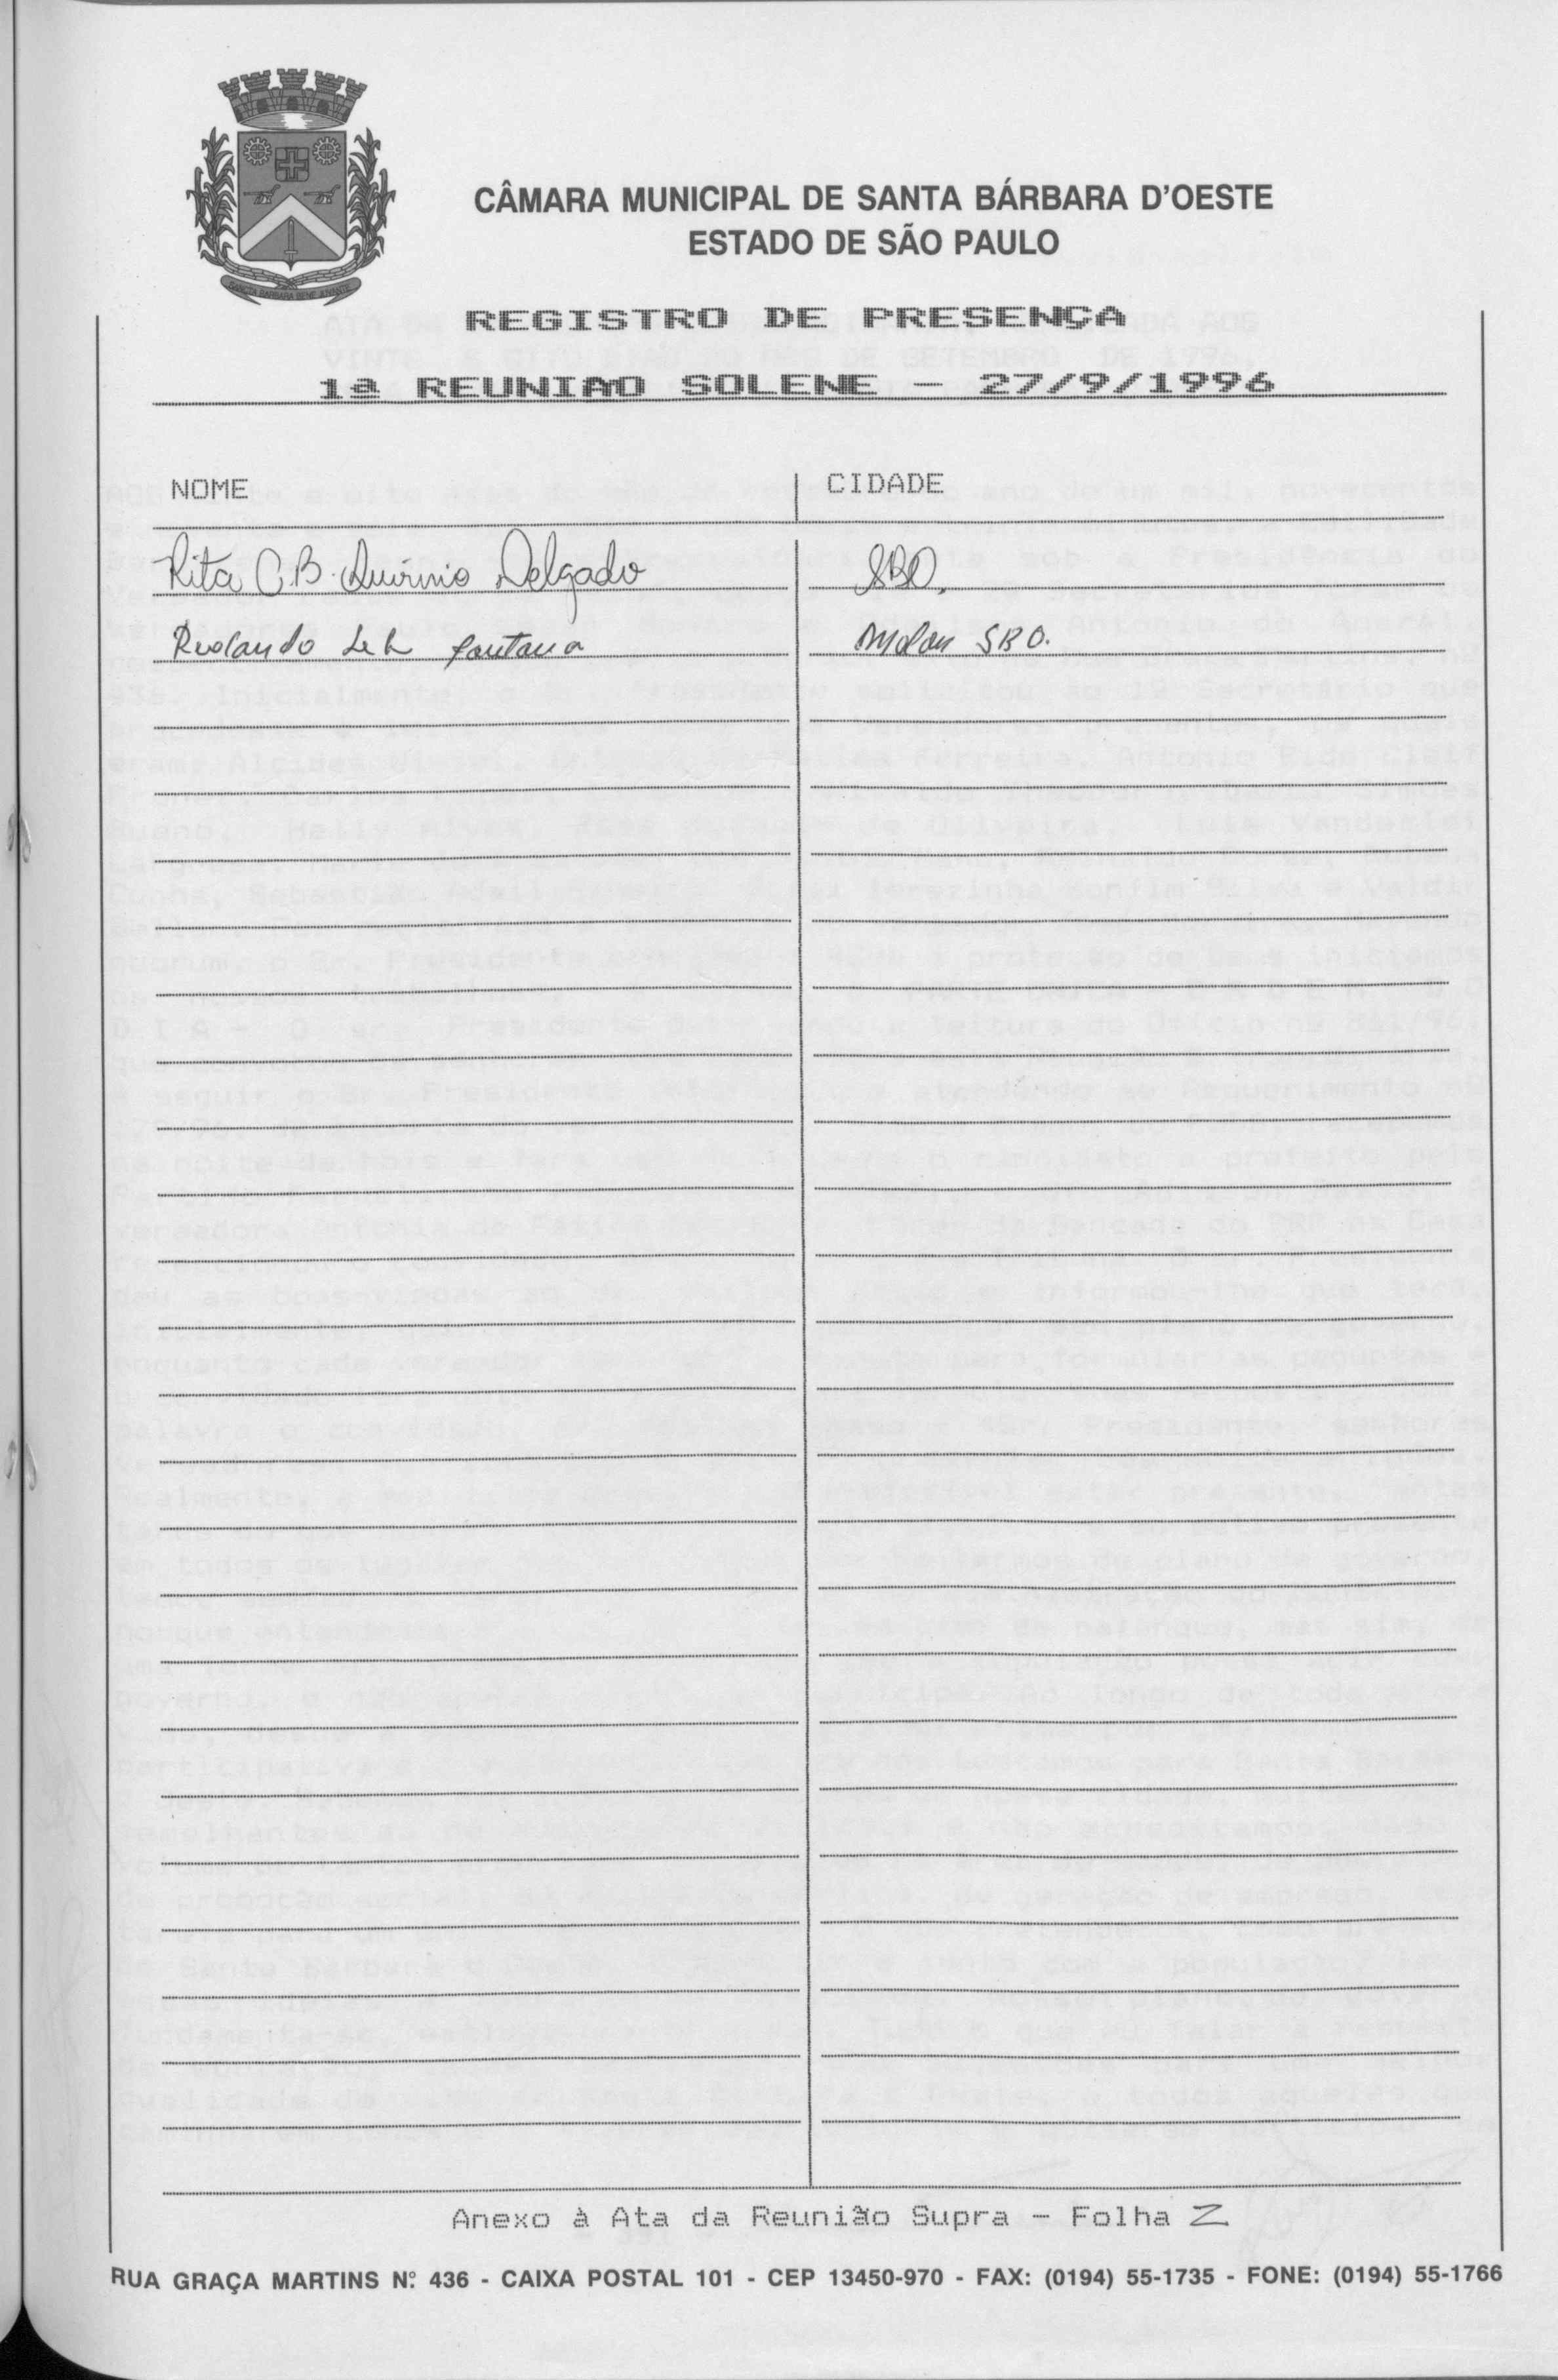 CÂMARA MUNICIPAL DE SANTA BÁRBARA D'OESTE
ESTADO DE SÃO PAULO
REGISTRO DE PRESENÇA
1ª REUNIÃO SOLENE - 27/9/1996
NOME CIDADE
Rita C B. Quirino Delgado SBO.
Rolando Fontana SBO.
Anexo à Ata da Reunião Supra - Folha 2
RUA GRAÇA MARTINS Nº 436 - CAIXA POSTAL 101 - CEP 13450-970 - FAX: (0194) 55-1735 - FONE: (0194) 55-1766